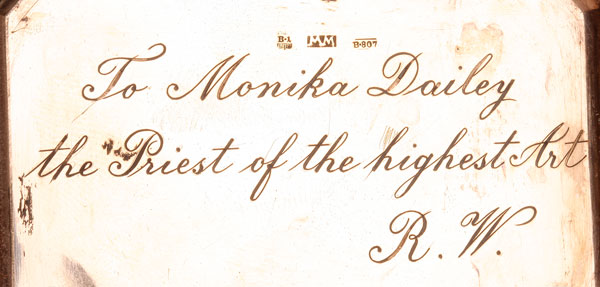 B-1 MM B-807
To Monika Dailey
the Priest of the highest Art
R. W.